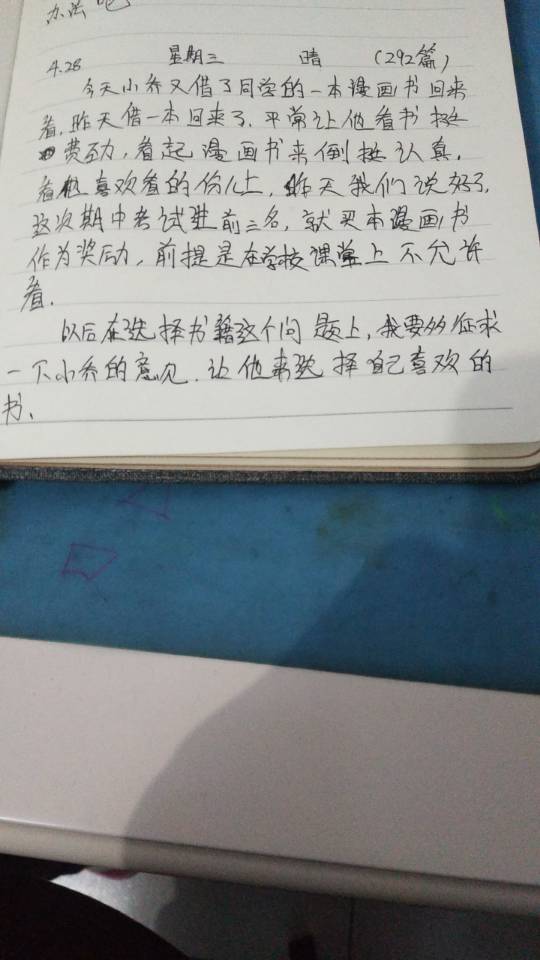 办法吧
4.28 星期三 晴 (292篇)
今天小乔又借了同学的一本漫画书回来
看,昨天借一本回来了.平常让他看书挺
费劲,看起漫画书来倒挺认真.
看他喜欢看的份儿上,昨天我们说好了.
这次期中考试进前三名,就买本漫画书
作为奖励,前提是在学校课堂上不允许
看.
以后在选择书籍这个问题上,我要多征求
一下小乔的意见.让他来选择自己喜欢的
书、